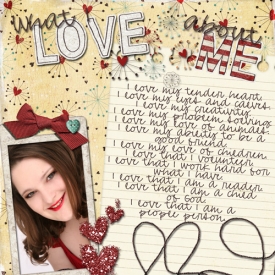 what
LOVE about
ME
I love my tender heart
I love my eyes and curves
I love my creativity
I love my problem solving
I love my love of animals
I love my ability to be a
good friend
I love my love of children
I love that I volunteer
I love that I work hard for
what I have
I love that I am a reader
I love that I am a child
of God
I love that I am a
people person